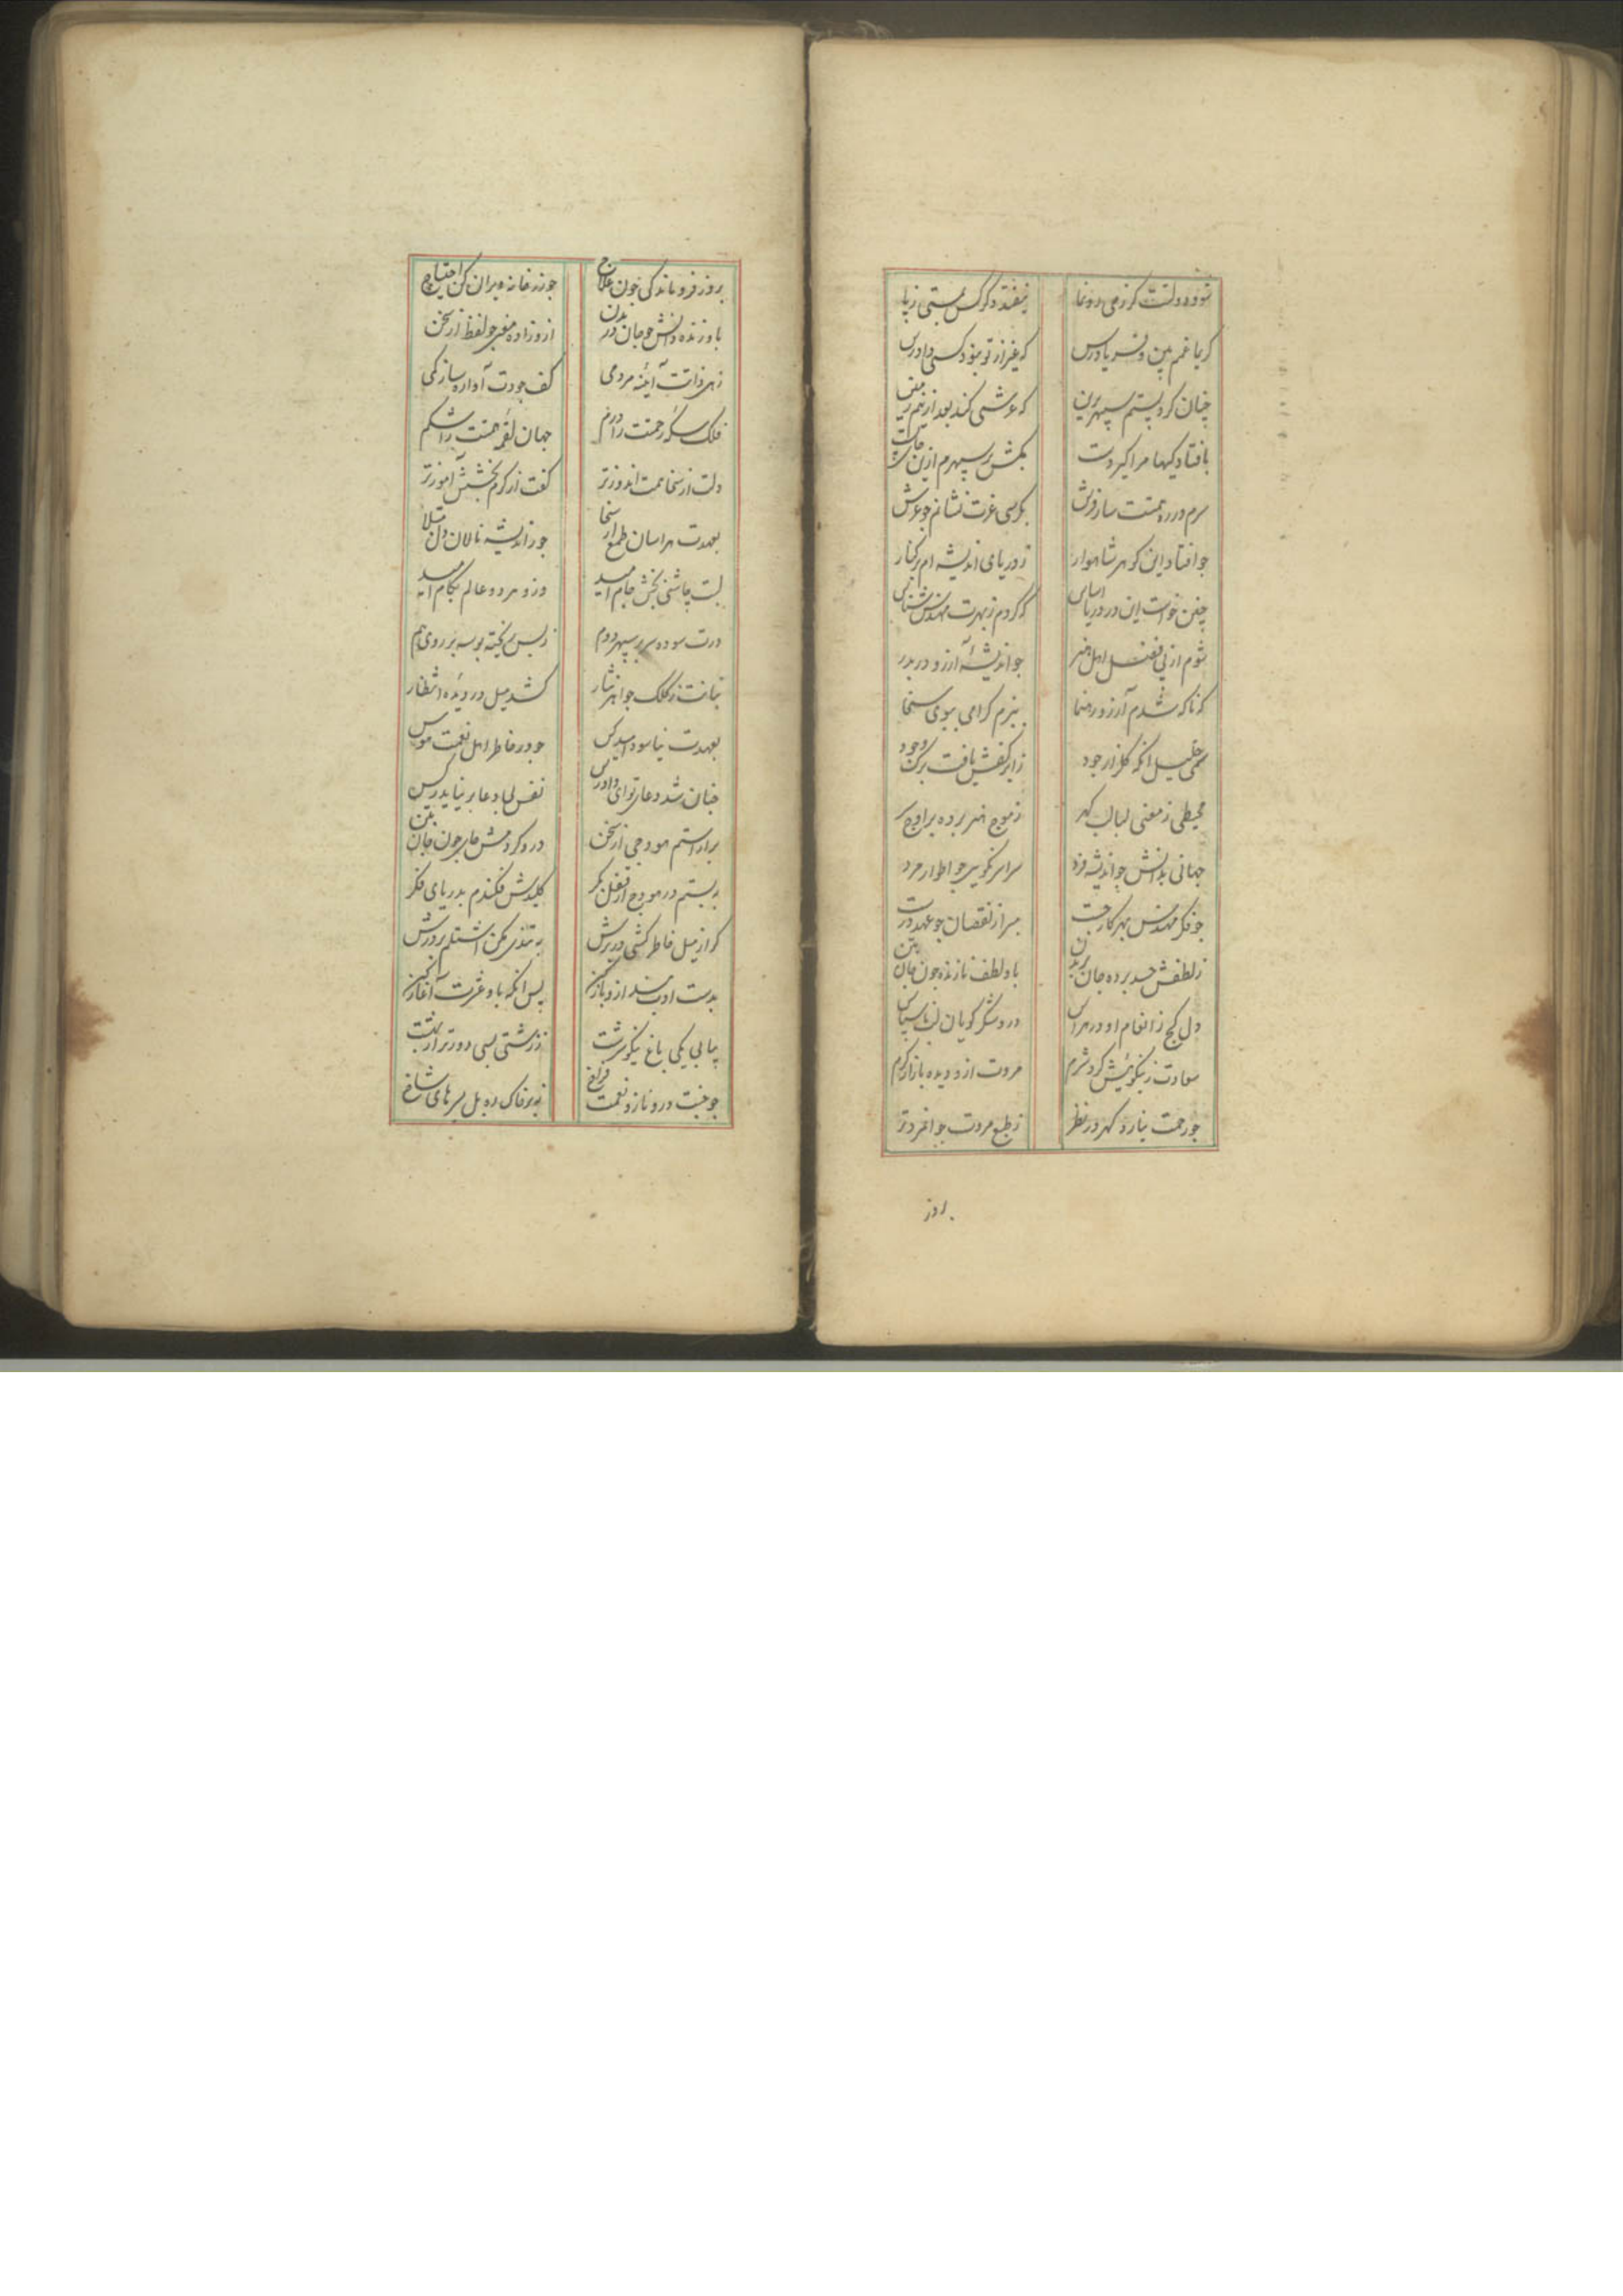 شود دولتت گر زمی رونما نیفتد دگر کس بستی ز پا
کریما غمم بین و فریادرس که غیر از تو نبود کسی دادرس
چنان کرد پستم سپهر برین که عرشی کند بعد ازینم زمین
بافتادگیها مرا گیر دست بکش بر سپهرم ازین خاک پست
سرم در ره همتت ساز فرش بکرسی عزت نشانم چو عرش
چو افتاد این گوهر شاهوار ز دریای اندیشه‌ام بر کنار
چنین خواست این در دریا اساس که کردم ز بهرت مهندس شناس
شوم از پی فضل اهل هنر چو اندیشهٔ آرزو در بدر
که ناگه شدم آرزو رهنما ببزم کرامی ببوی سخا
سمی خلیل آنکه گلزار جود ز ابر کفش یافت برگ وجود
محیطی ز معنی لبالب گهر ز موج هنر برده بر اوج سر
جهانی بدانش چو اندیشه فرد سراسر نکویی چو اطوار مرد
چو فکر مهندس بهر کار چست مبرا ز نقصان چو عهد درست
ز لطفش حسد برده جان بر بدن باو لطف نازنده چون جان بتن
دل گنج ز انعام او در هراس درو شکر گویان لب ناسپاس
سعادت ز نیکوئیش کرد شرم مروت ازو دیده بازار گرم
چو رحمت نیارد گهر در نظر ز طبع مروت جوانمردتر
بروز
بروز فروماندگی چون علاج چو زر خانه ویران کن احتیاج
باو زنده دانش چو جان در بدن ازو زاده معنی چو لفظ از سخن
زهی ذاتت آئینهٔ مردمی کف جودت آواره ساز کمی
فلک سکهٔ رحمتت را درم جهان لقمهٔ همتت را شکم
دلت از سخا همت اندوزتر کفت از کرم بخشش آموزتر
بعهدت هراسان طمع از سخا چو ز اندیشه نالان دل مبتلا
لبت چاشنی بخش جام امید وزو هر دو عالم بکام امید
درت سوده سر بر سپهر دوم ز بس ریخته بوسه بر روی هم
نیافت ز کلک جواهر نثار کشد میل در دیدهٔ انتظار
بعهدت نیاسود امید کس چو در خاطر اهل نعمت هوس
چنان شد دعای تو ای دادرس نفس را بباد دعا بر نیاید ز کس
بیاراستم هودجی از سخن درو کردمش جای چون جان بتن
به بستم در هودج از قفل بکر کلیدش فکندم بدریای فکر
گر از میل خاطر کشی در برش به تندی مکن اشتلم بر درش
بدست ادب بند ازو باز کن پس آنکه باو عشرت آغاز کن
بیابی یکی باغ نیکو سرشت ز زشتی بسی دورتر از بهشت
چو جنت درو ناز و نعمت فراخ نه بر خاک ره بل سر های شاخ